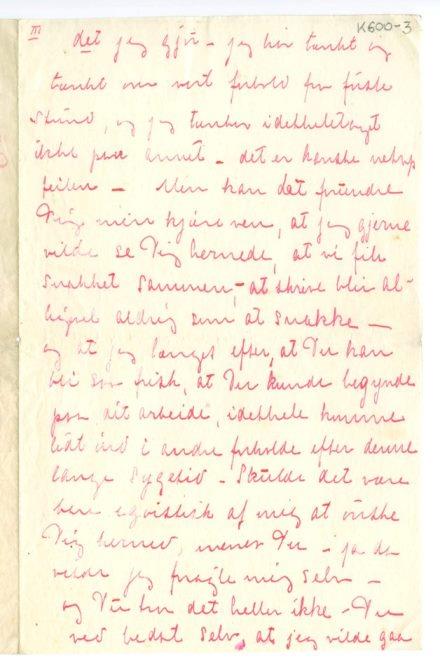 III
K600-3
det jeg gjör – jeg har tænkt og
tænkt over vort forhold fra förste
stund, og jeg tænker idethele taget
ikke paa annet – det er kanske netop
feilen – Men kan det forundre
Dig min kjære ven, at jeg gjerne
vilde se Dig hernede, at vi fik
snakket sammen, – at skrive blir al-
ligevel aldrig som at snakke –
og at jeg længes efter, at Du kan
bli saa frisk, at Du kunde begynde
paa dit arbeide, idethele komme
lidt ind i andre forholde efter denne
lange sygetid – Skulde det være
bare egoistisk af mig at önske
Dig herned, mener Du – ja da
vilde jeg fragte mig selv –
og Du tror det heller ikke – Du
ved bedst selv, at jeg vilde gaa